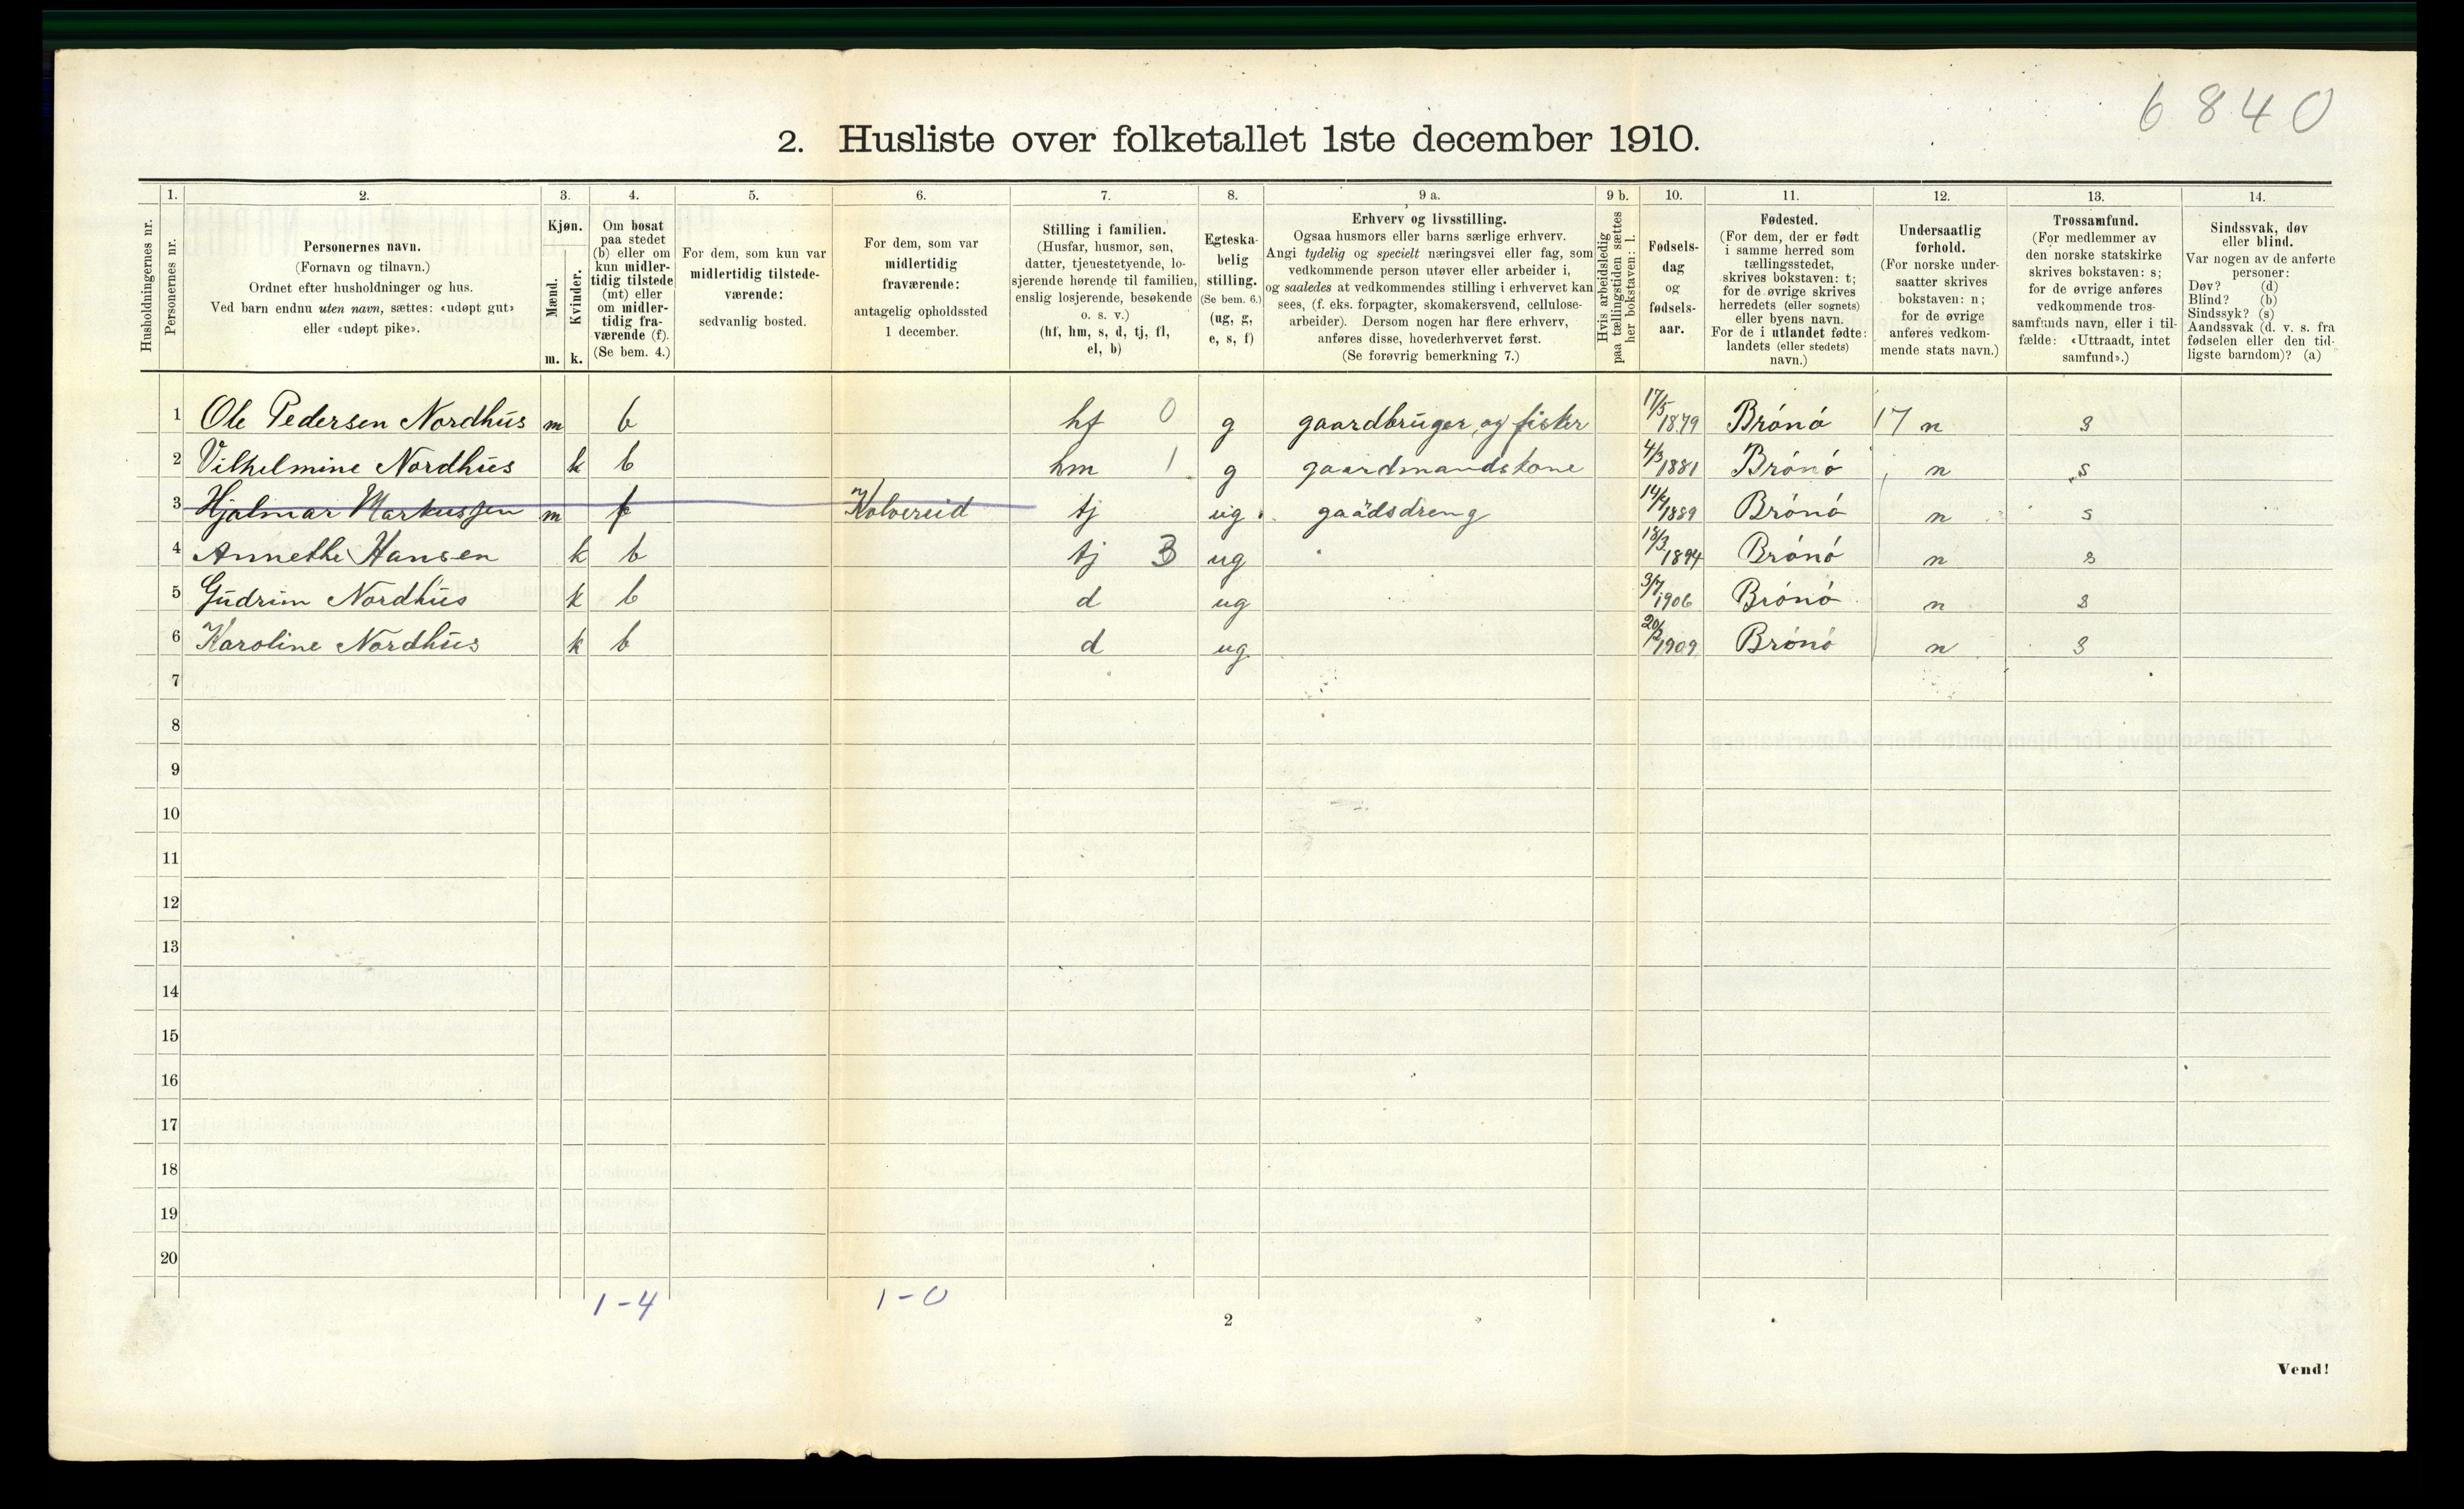 6840
2. Husliste over folketallet 1ste december 1910.
Husholdningernes nr.
1. Personernes nr.
2. Personernes navn.
(Fornavn og tilnavn.)
Ordnet efter husholdninger og hus.
Ved barn endnu uten navn, sættes: «udøpt gut»
eller «udøpt pike».
3. Kjøn.
Mænd. Kvinder.
m. k.
4. Om bosat
paa stedet
(b) eller om
kun midler-
tidig tilstede
(mt) eller
om midler-
tidig fra-
værende (f).
(Se bem. 4.)
5. For dem, som kun var
midlertidig tilstede-
værende:
sedvanlig bosted.
6. For dem, som var
midlertidig
fraværende:
antagelig opholdssted
1 december.
7. Stilling i familien.
(Husfar, husmor, søn,
datter, tjenestetyende, lo-
sjerende hørende til familien,
enslig losjerende, besøkende
o. s. v.)
(hf, hm, s, d, tj, fl,
el, b)
8. Egteska-
belig
stilling.
(Se bem. 6.)
(ug, g,
e, s, f)
9 a. Erhverv og livsstilling.
Ogsaa husmors eller barns særlige erhverv.
Angi tydelig og specielt næringsvei eller fag, som
vedkommende person utøver eller arbeider i,
og saaledes at vedkommendes stilling i erhvervet kan
sees, (f. eks. forpagter, skomakersvend, cellulose-
arbeider). Dersom nogen har flere erhverv,
anføres disse, hovederhvervet først.
(Se forøvrig bemerkning 7.)
9 b. Hvis arbeidsledig
paa tællingstiden sættes
her bokstaven: l.
10. Fødsels-
dag
og
fødsels-
aar.
11. Fødested.
(For dem, der er født
i samme herred som
tællingsstedet,
skrives bokstaven: t;
for de øvrige skrives
herredets (eller sognets)
eller byens navn.
For de i utlandet fødte:
landets (eller stedets)
navn.)
12. Undersaatlig
forhold.
(For norske under-
saatter skrives
bokstaven: n;
for de øvrige
anføres vedkom-
mende stats navn.)
13. Trossamfund.
(For medlemmer av
den norske statskirke
skrives bokstaven: s;
for de øvrige anføres
vedkommende tros-
samfunds navn, eller i til-
fælde: «Uttraadt, intet
samfund».)
14. Sindssvak, døv
eller blind.
Var nogen av de anførte
personer:
Døv? (d)
Blind? (b)
Sindssyk? (s)
Aandssvak (d. v. s. fra
fødselen eller den tid-
ligste barndom)? (a)
1 Ole Pedersen Nordhus m b hf 0 g gaardbruger og fisker 17/5 1879 Brónó 17 n s
2 Vilhelmine Nordhus k b hm 1 g gaardmandskone 4/3 1881 Brónó n s
3 Hjalmar Markussen m f Kolvereid tj ug gaädsdreng 1889 Brónó n s
4 Annethe Hansen k b tj 3 ug 18/3 1894 Brónó n s
5 Gudrun Nordhus k b d ug 3/7 1906 Brónó n s
6 Karoline Nordhus k b d ug 1909 Brónó n s
7
8
9
10
11
12
13
14
15
16
17
18
19
20
1-4 1-0
2
Vend!